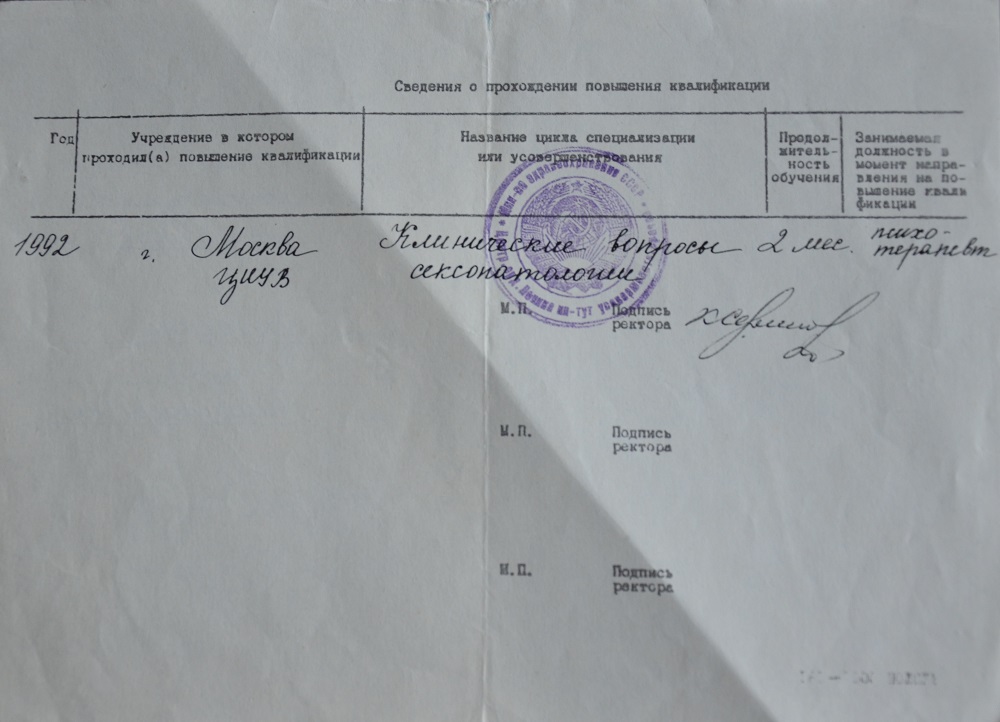 Сведения о прохождении повышения квалификации
Год
Учреждение в котором
проходил(а) повышение квалификации
Название цикла специализации
или усовершенствования
Продол-
житель-
ность
обучения
Занимаемая
должность в
момент направ-
вления на по-
вышение квали
фикации
1992
г. Москва
ЦИУВ
Клинические вопросы
сексопатологии
2 мес.
психо-
терапевт
М.П.
Подпись
ректора
М.П.
Подпись
ректора
М.П.
Подпись
ректора